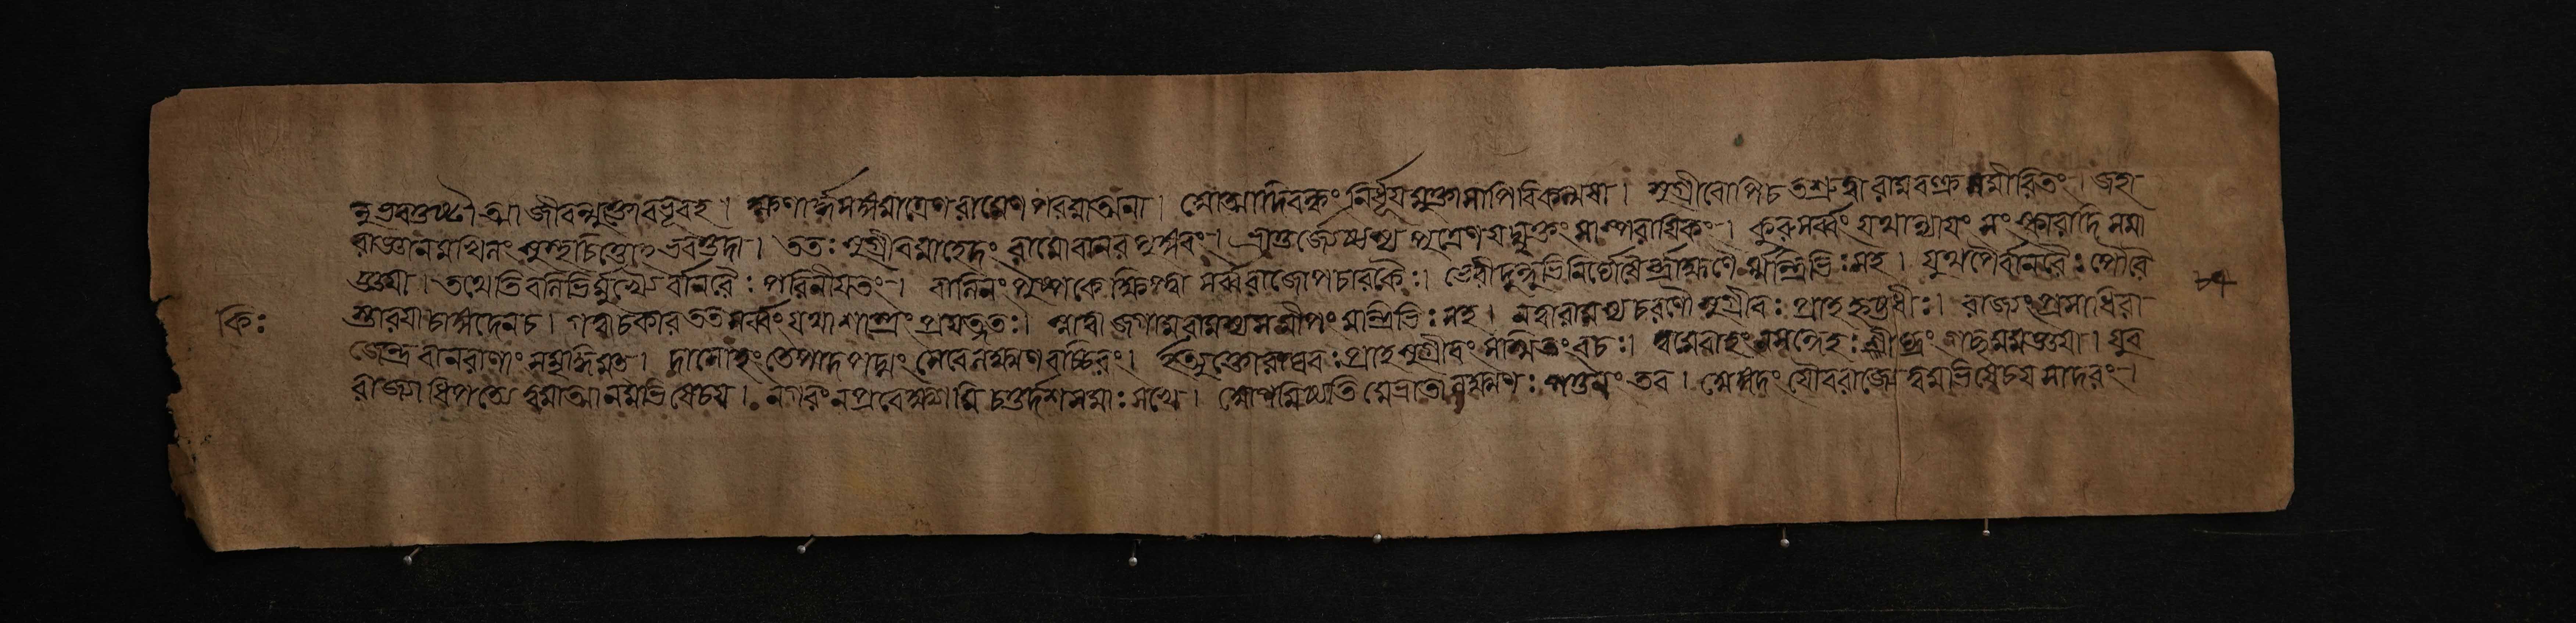 নুভবসন্তুষ্টা জীবন্মুক্তা বভূবহ । ক্ষণার্দ্ধসঙ্গমাত্রেণ রামেণ পরমাত্মনা । অনাদিবন্ধং নির্ধূয় মুক্তা সাপি বিকল্মষা । সুগ্রীবোপি চ তশ্রুত্বা রামবক্ত্র সমীরিতং । জহা
বাজ্ঞানমখিলং সুস্থচিত্তোহ ভবত্তদা । ততঃ সুগ্রীবমাহেদং রামো বানরপুঙ্গবং । ভ্রাতুর্জ্যেষ্ঠস্য পুত্রেণ যদ্যুক্তং সাম্পরায়িকং । কুরু সর্ব্বং যথান্যায়ং সংস্কারাদি মমা
জ্ঞয়া । তথেতি বলিভির্মুখ্যৈর্বানরৈঃ পরিনীয়তং । বালিনং পুষ্পকে ক্ষিপ্ত্বা সর্ব্বরাজোপচারকৈঃ । ভেরীদুন্দুভিনির্ঘোষৈর্ব্রাহ্মণৈর্ম্মন্ত্রিভিঃ সহ । যুথপৈর্বানরৈঃ পৌরৈ
স্তারয়া চাঙ্গদেন চ । গত্বা চকার তত সর্ব্বং যথাশাস্ত্রং প্রযত্নতঃ । স্নাত্বা জগাম রামস্য সমীপং মন্ত্রিভিঃ সহ । নত্বা রামস্য চরণৌ সুগ্রীবঃ প্রাহ হৃষ্টধীঃ । রাজ্যং প্রসাধি রা
জেন্দ্র বানরাণাং সমৃদ্ধিমত । দাসোহং তে পাদপদ্মং সেবে লক্ষ্মণবচ্চিরং । ইত্যুক্তো রাঘবঃ প্রাহ সুগ্রীবং সস্মিতং বচঃ । ত্বমেবাহং ন সন্দেহঃ শীঘ্রং গচ্ছ মমাজ্ঞয়া । পুর
রাজ্যাধিপত্যে ত্বমাত্মানমভিষেচয় । নগরং ন প্রবেক্ষ্যামি চতুর্দ্দশ সমাঃ সখে । আগমিষ্যতি মে ভ্রাতা লক্ষ্মণঃ পত্তনং তব । অঙ্গদং যৌবরাজ্যে ত্বমভিষেচয় সাদরং ।
কিঃ